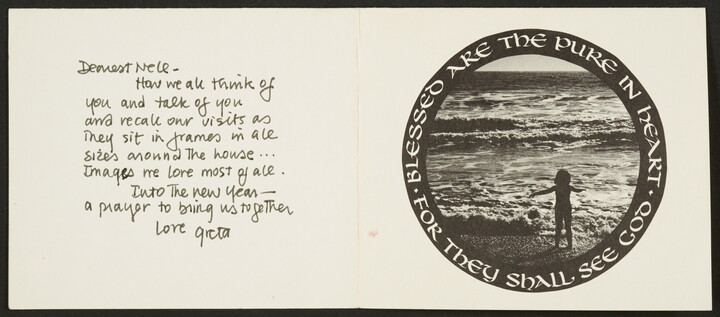 Dearest Nell -
How we all think of
you and talk of you
and recall our visits as
They sit in frames in all
sizes around The house ...
Images we love most of all.
Into The new Year —
a prayer to bring us together
Love Greta
· BLESSED ARE THE PURE IN HEART ·
FOR THEY SHALL SEE GOD